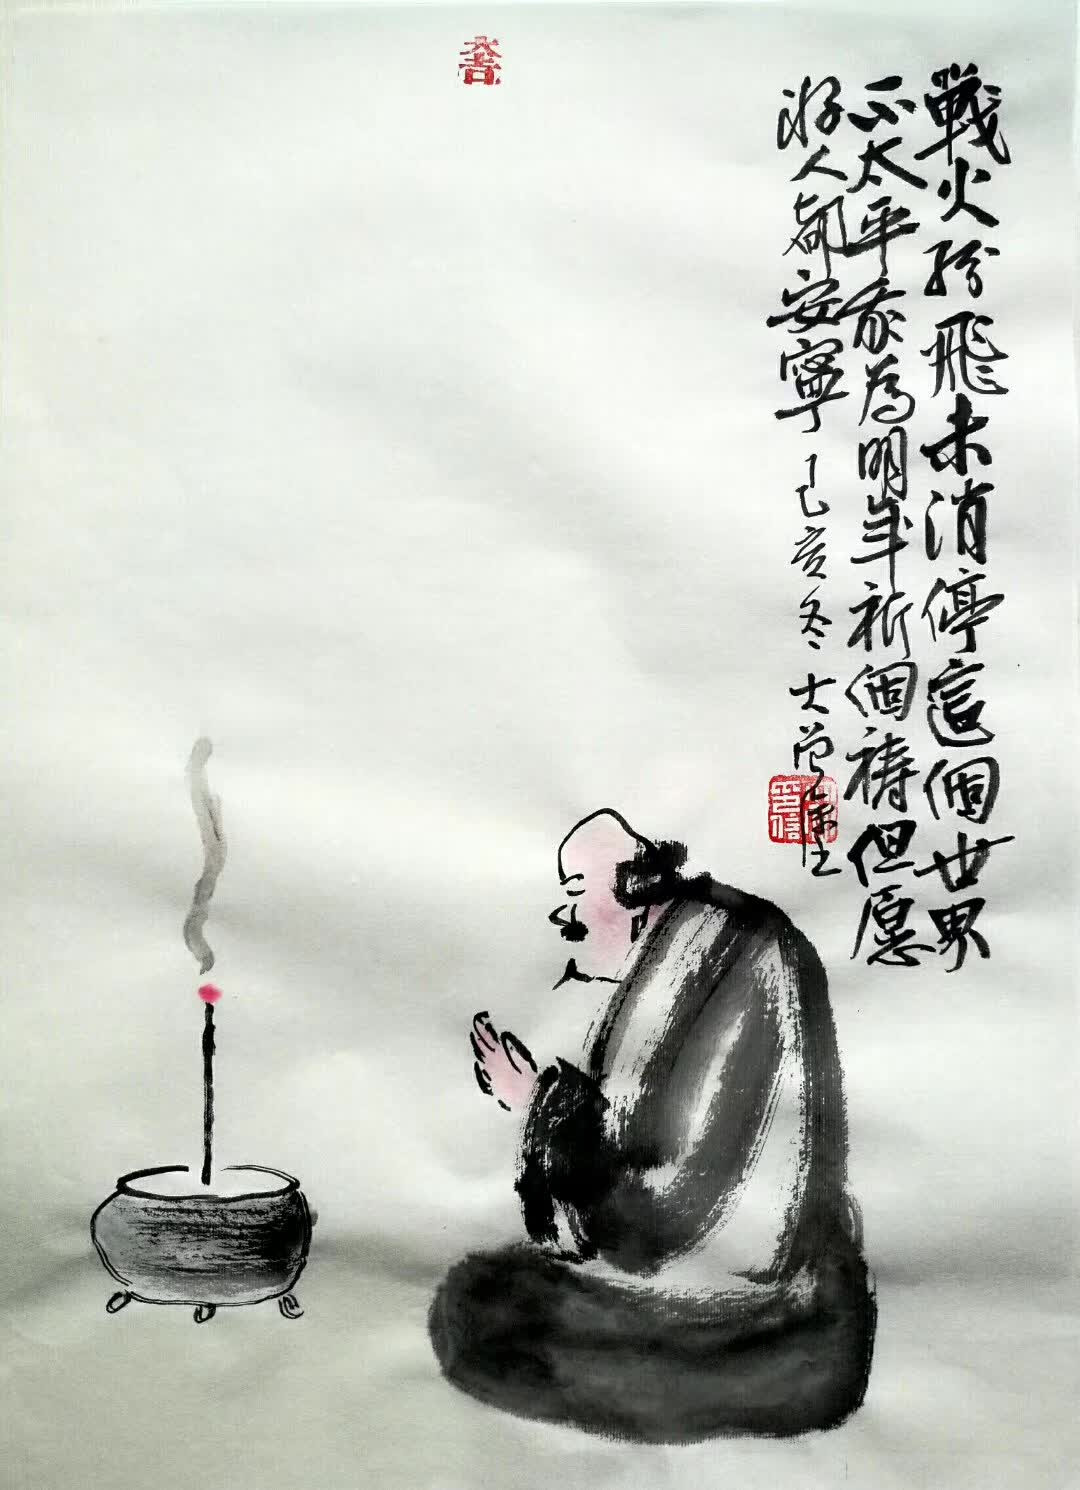 戰火紛飛未消停這個世界
不太平我為明年祈個禱但愿
游人都安寧 己亥冬 大曾
大吉